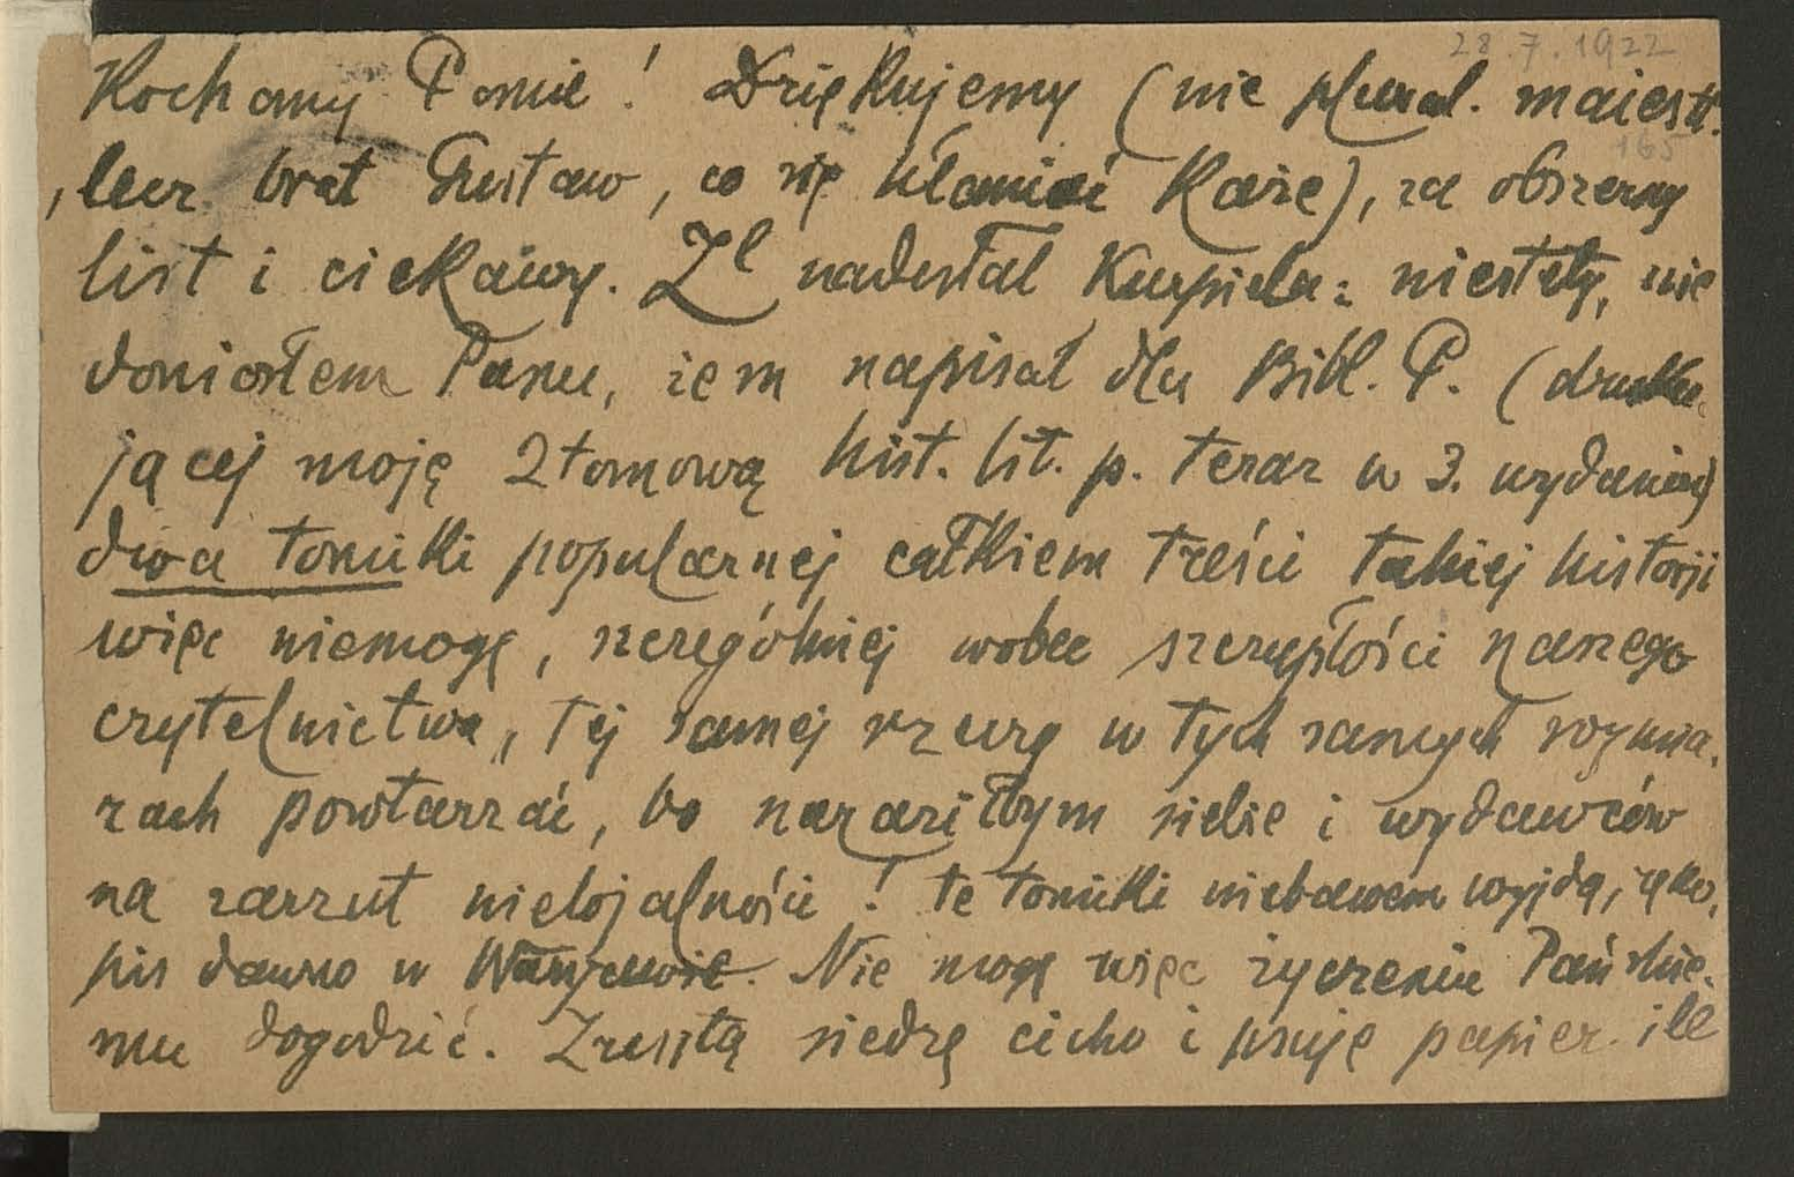 28.7.1922
Kochany Panie! Dziękujemy (nie plural. maiest.
165
, lecz brat Gustaw, co się kłaniać każe), za obszerny
list i ciekawy. Zł nadesłał Kurpiela: niestety, nie
doniosłem Panu, żem napisał dla Bibl. P. (druku-
jącej moję 2tomową hist. lit. p. teraz w 3. wydaniu)
dwa tomiki popularnej całkiem treści takiej historji
więc niemogę, szczególniej wobec szczupłości naszego
czytelnictwa, tej samej rzeczy w tych samych rozmia-
rach powtarzać, bo naraziłbym siebie i wydawców
na zarzut nielojalności! te tomiki niebawem wyjdą, ręko-
pis dawno w Warszawie. Nie mogę więc życzeniu Pańskie-
mu dogodzić. Zresztą siedzę cicho i psuję papier ile